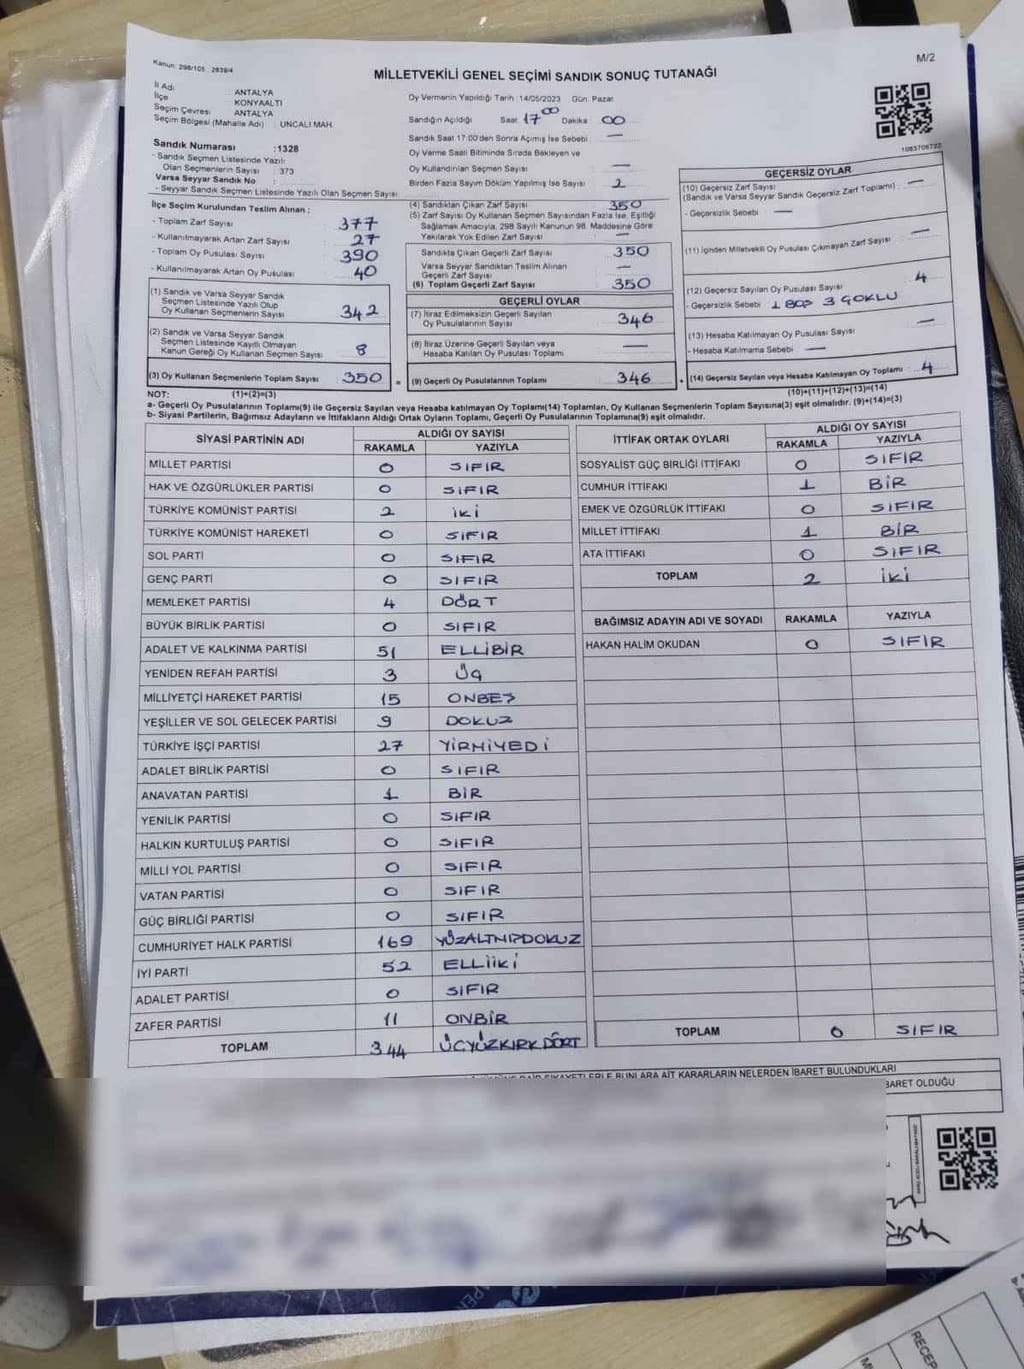 Kanun: 298/105 2839/4
M/2
MİLLETVEKİLİ GENEL SEÇİMİ SANDIK SONUÇ TUTANAĞI
İl Adı : ANTALYA
İlçe : KONYAALTI
Seçim Çevresi : ANTALYA
Seçim Bölgesi (Mahalle Adı) : UNCALI MAH.
Sandık Numarası :1328
- Sandık Seçmen Listesinde Yazılı
Olan Seçmenlerin Sayısı : 373
Varsa Seyyar Sandık No :
- Seyyar Sandık Seçmen Listesinde Yazılı Olan Seçmen Sayısı
Oy Vermenin Yapıldığı Tarih :14/05/2023 Gün: Pazar
Sandığın Açıldığı Saat 17 00 Dakika 00
Sandık Saat 17:00'den Sonra Açımış İse Sebebi —
Oy Verme Saati Bitiminde Sırada Bekleyen ve
Oy Kullandırılan Seçmen Sayısı —
Birden Fazla Sayım Döküm Yapılmış İse Sayısı 2
1083708722
İlçe Seçim Kurulundan Teslim Alınan ;
- Toplam Zarf Sayısı 377
- Kullanılmayarak Artan Zarf Sayısı 27
- Toplam Oy Pusulası Sayısı 390
- Kullanılmayarak Artan Oy Pusulası 40
(1) Sandık ve Varsa Seyyar Sandık
Seçmen Listesinde Yazılı Olup
Oy Kullanan Seçmenlerin Sayısı 342
(2) Sandık ve Varsa Seyyar Sandık
Seçmen Listesinde Kayıtlı Olmayan
Kanun Gereği Oy Kullanan Seçmen Sayısı 8
(3) Oy Kullanan Seçmenlerin Toplam Sayısı 350
(4) Sandıktan Çıkan Zarf Sayısı 350
(5) Zarf Sayısı Oy Kullanan Seçmen Sayısından Fazla İse, Eşitliği
Sağlamak Amacıyla, 298 Sayılı Kanunun 98. Maddesine Göre
Yakılarak Yok Edilen Zarf Sayısı —
Sandıkta Çıkan Geçerli Zarf Sayısı 350
Varsa Seyyar Sandıktan Teslim Alınan
Geçerli Zarf Sayısı —
(6) Toplam Geçerli Zarf Sayısı 350
GEÇERLİ OYLAR
(7) İtiraz Edilmeksizin Geçerli Sayılan
Oy Pusulalarının Sayısı 346
(8) İtiraz Üzerine Geçerli Sayılan veya
Hesaba Katılan Oy Pusulası Toplamı —
= (9) Geçerli Oy Pusulalarının Toplamı 346
GEÇERSİZ OYLAR
(10) Geçersiz Zarf Sayısı —
(Sandık ve Varsa Seyyar Sandık Geçersiz Zarf Toplamı)
- Geçersizlik Sebebi —
(11) İçinden Milletvekili Oy Pusulası Çıkmayan Zarf Sayısı —
(12) Geçersiz Sayılan Oy Pusulası Sayısı 4
- Geçersizlik Sebebi 1 BOŞ 3 ÇOKLU
(13) Hesaba Katılmayan Oy Pusulası Sayısı —
- Hesaba Katılmama Sebebi —
(14) Geçersiz Sayılan veya Hesaba Katılmayan Oy Toplamı 4
NOT: (1)+(2)=(3) (10)+(11)+(12)+(13)=(14)
a- Geçerli Oy Pusulalarının Toplamı(9) ile Geçersiz Sayılan veya Hesaba katılmayan Oy Toplamı(14) Toplamları, Oy Kullanan Seçmenlerin Toplam Sayısına(3) eşit olmalıdır. (9)+(14)=(3)
b- Siyasi Partilerin, Bağımsız Adayların ve İttifakların Aldığı Ortak Oyların Toplamı, Geçerli Oy Pusulalarının Toplamına(9) eşit olmalıdır.
SİYASİ PARTİNİN ADI ALDIĞI OY SAYISI
RAKAMLA YAZIYLA
MİLLET PARTİSİ 0 SIFIR
HAK VE ÖZGÜRLÜKLER PARTİSİ 0 SIFIR
TÜRKİYE KOMÜNİST PARTİSİ 2 İKİ
TÜRKİYE KOMÜNİST HAREKETİ 0 SIFIR
SOL PARTİ 0 SIFIR
GENÇ PARTİ 0 SIFIR
MEMLEKET PARTİSİ 4 DÖRT
BÜYÜK BİRLİK PARTİSİ 0 SIFIR
ADALET VE KALKINMA PARTİSİ 51 ELLİBİR
YENİDEN REFAH PARTİSİ 3 ÜÇ
MİLLİYETÇİ HAREKET PARTİSİ 15 ONBEŞ
YEŞİLLER VE SOL GELECEK PARTİSİ 9 DOKUZ
TÜRKİYE İŞÇİ PARTİSİ 27 YİRMİYEDİ
ADALET BİRLİK PARTİSİ 0 SIFIR
ANAVATAN PARTİSİ 1 BİR
YENİLİK PARTİSİ 0 SIFIR
HALKIN KURTULUŞ PARTİSİ 0 SIFIR
MİLLİ YOL PARTİSİ 0 SIFIR
VATAN PARTİSİ 0 SIFIR
GÜÇ BİRLİĞİ PARTİSİ 0 SIFIR
CUMHURİYET HALK PARTİSİ 169 YÜZALTMIŞDOKUZ
İYİ PARTİ 52 ELLİİKİ
ADALET PARTİSİ 0 SIFIR
ZAFER PARTİSİ 11 ONBİR
TOPLAM 344 ÜÇYÜZKIRKDÖRT
İTTİFAK ORTAK OYLARI ALDIĞI OY SAYISI
RAKAMLA YAZIYLA
SOSYALİST GÜÇ BİRLİĞİ İTTİFAKI 0 SIFIR
CUMHUR İTTİFAKI 1 BİR
EMEK VE ÖZGÜRLÜK İTTİFAKI 0 SIFIR
MİLLET İTTİFAKI 1 BİR
ATA İTTİFAKI 0 SIFIR
TOPLAM 2 İKİ
BAĞIMSIZ ADAYIN ADI VE SOYADI RAKAMLA YAZIYLA
HAKAN HALİM OKUDAN 0 SIFIR
TOPLAM 0 SIFIR
ŞİKAYETLERLE BUNLARA AİT KARARLARIN NELERDEN İBARET BULUNDUKLARI
BARET OLDUĞU